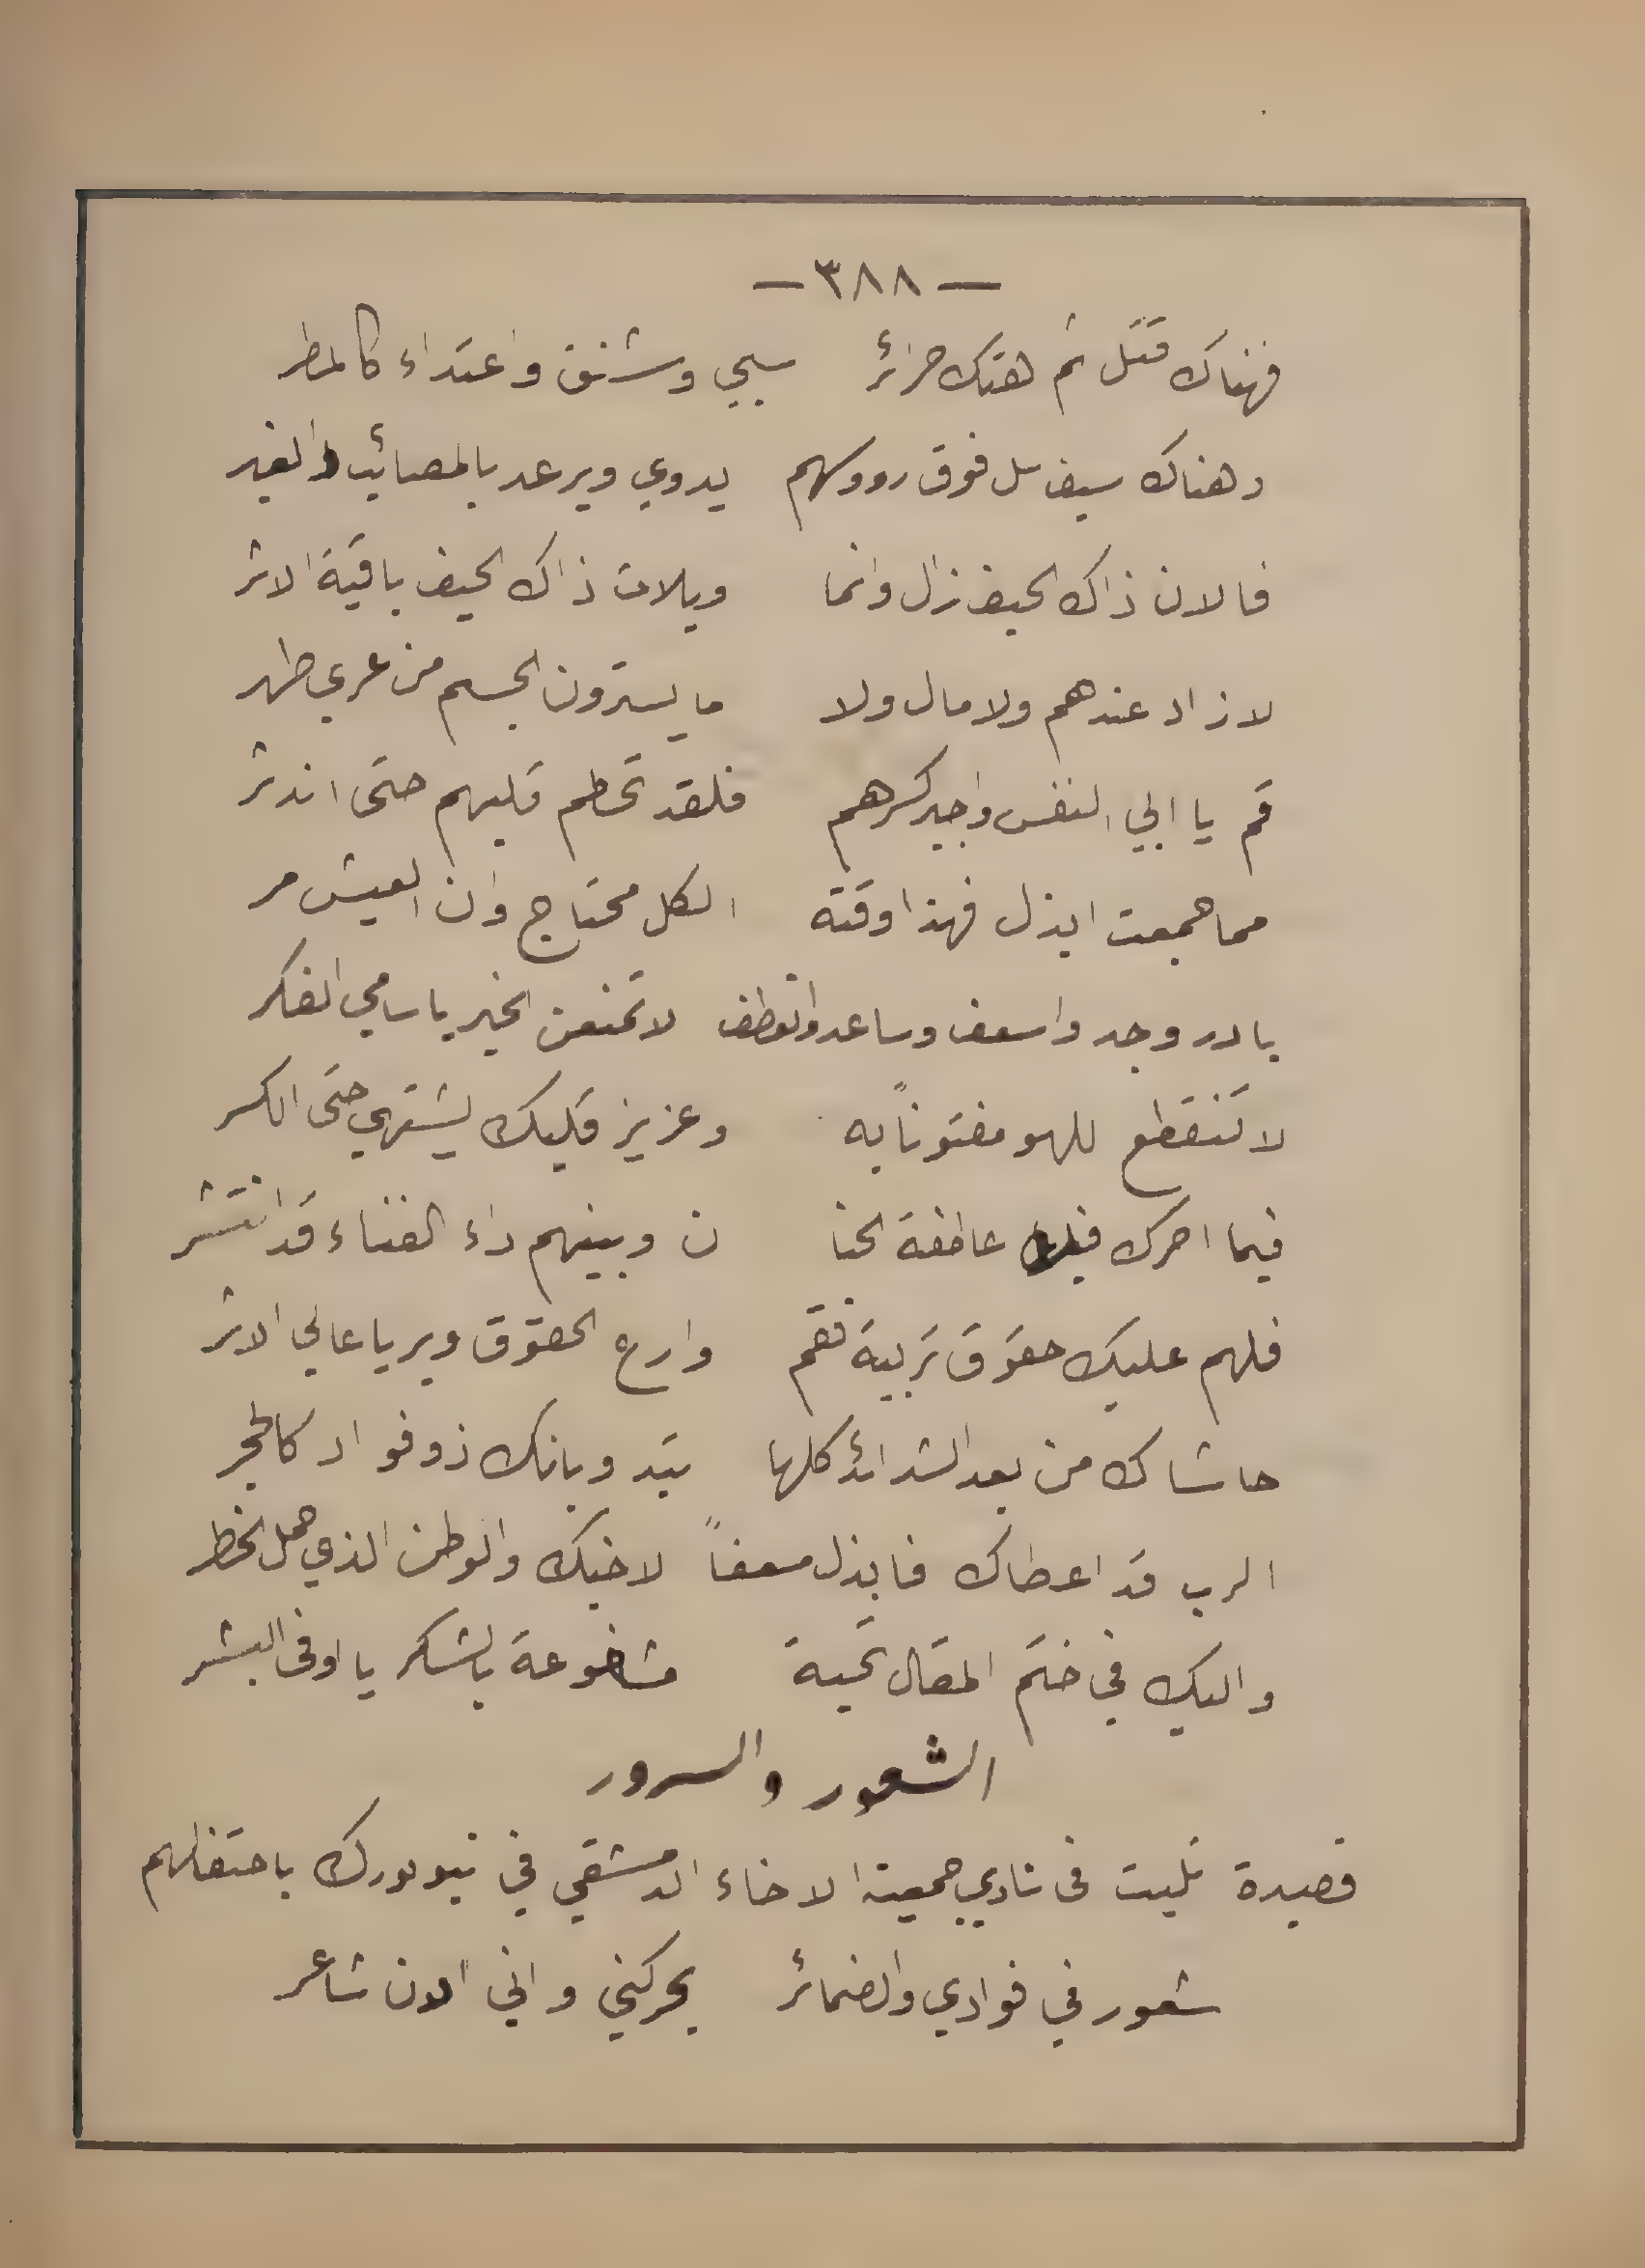 — ٣٨٨ —
فهناك قتل ثم هتك حرائر سبي وشنق واعتداء كالمطر
وهناك سيف سل فوق رووسهم يدوي ويرعد بالمصائب والغير
فالان ذاك الحيف زال وانما ويلات ذاك الحيف باقية الاثر
لا زاد عندهم ولا مال ولا ما يسترون الجسم من عري ظهر
قم يا ابي النفس واجبر كسرهم فلقد تحطم قلبهم حتى اندثر
مما جمعت ابذل فهذا وقته الكل محتاج وان العيش مر
بادر وجد واسعف وساعد وانعطف لا تمنعن الخير يا سامي الفكر
لا تنقطع للهو مفتوناً به وعزيز قلبك يشتهي حتى الكسر
فيما احرك فيك عاطفة الحنا ن وبينهم داء الفناء قد انتشر
فلهم عليك حقوق تربية فقم وارع الحقوق وبر يا عالي الاثر
حاشاك من بعد الشدائد كلها تبدو بانك ذو فواد كالحجر
الرب قد اعطاك فابذل مسعفاً لاخيك والوطن الذي حمل الخطر
واليك في ختم المقال تحية مشفوعة بالشكر يا اوفى البشر
الشعور والسرور
قصيدة تليت في نادي جمعية الاخاء الدمشقي في نيويورك باحتفالهم
شعور في فوادي والضمائر يحركني واني الان شاعر